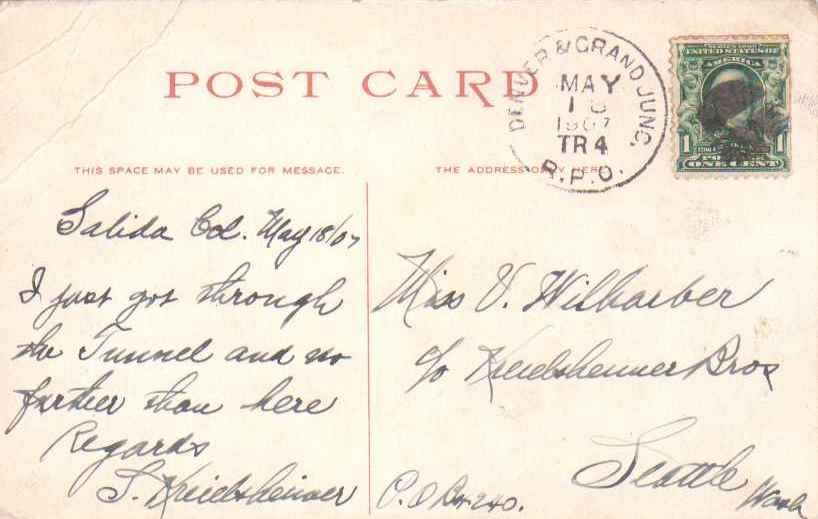 POST CARD
DENVER & GRAND JUNC.
MAY
18
1907
TR 4
R.P.O.
SERIES 1902
UNITED STATES OF
AMERICA
1 1
ONE CENT
THIS SPACE MAY BE USED FOR MESSAGE.
THE ADDRESS ONLY HERE
Salida Col. May 18/07
I just got through
the Tunnel and no
farther than here
Regards
S. Kreielsheimer
Miss V. Wilharber
c/o Kreielsheimer Bros
Seattle Wash
P.O Box 240.